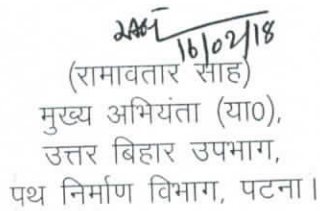 16/02/18
(रामावतार साह)
मुख्य अभियंता (या०),
उत्तर बिहार उपभाग,
पथ निर्माण विभाग, पटना।